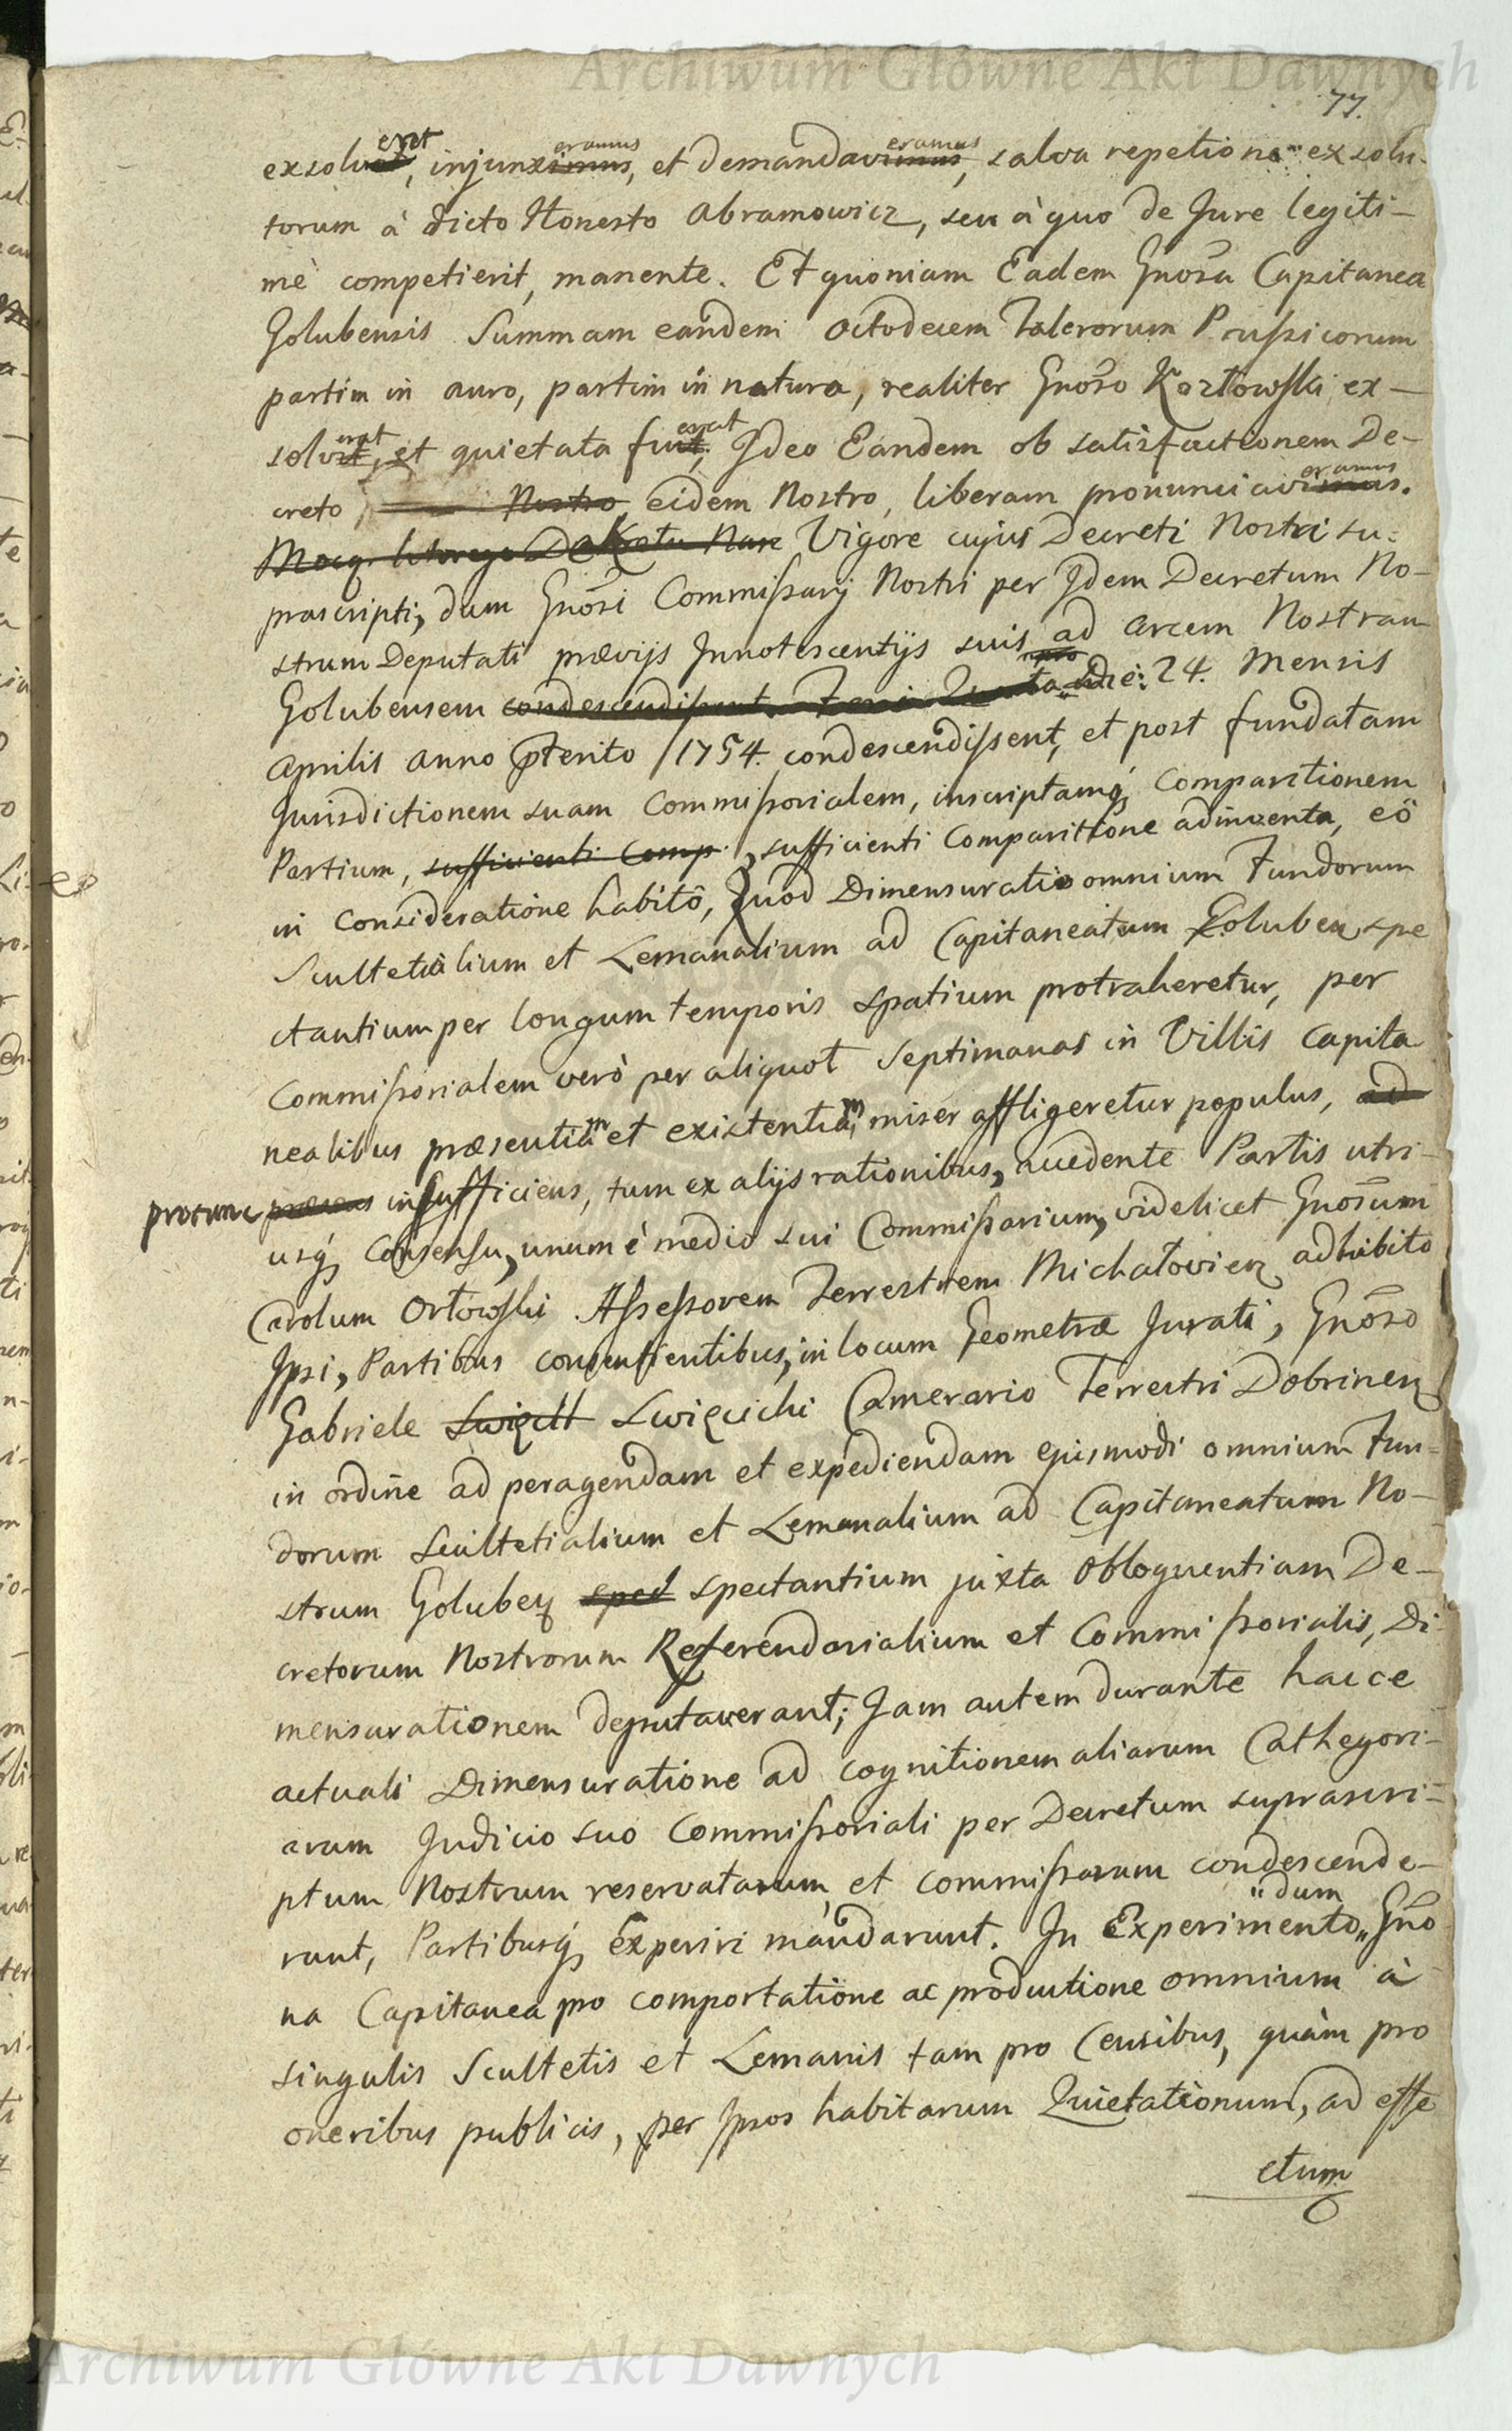 Archiwum Główne Akt Dawnych
77.
exsolvat eret, injunximus eramus, et demandavimus eramus, salva repetione exsolu-
torum à dicto Honesto Abramowicz, seu à quo de Jure legiti-
mè competierit, manente. Et quoniam Eadem Gnosa Capitanea
Golubensis Summam eandem Octodecem Talerorum Prussicorum
partim in auro, partim in natura, realiter Gnoso Kozłowski ex-
solvit erat, et quietata fuit erat, Ideo Eandem ob satisfactionem De-
creto Nostro eidem Nostro, liberam pronunciavimus eramus.
Mocą ktorego Dekretu Vigore cujus Decreti Nostri su-
prascripti, dum Gnosi Commissarij Nostri per Idem Decretum No-
strum Deputati prævijs Innotescentijs suis ad Arcem Nostram
Golubensem condescendissent die: 24. Mensis
Aprilis Anno pterito 1754. condescendissent, et post fundatam
Jurisdictionem suam Commissorialem, inscriptamq, Comparitionem
Partium, sufficienti Comp. , sufficienti Comparitione adinventa, eô
in consideratione habitô, Quod Dimensuratio omnium Fundorum
Scultetialium et Lemanalium ad Capitaneatum Goluben spe
ctantium per longum temporis spatium protraheretur, per
Commissorialem verò per aliquot Septimanas in Villis Capita
nealibus præsentiam et existentiam, miser affligeretur populus, ad
protunc insufficiens, tum ex alijs rationibus, accedente Partis utri-
usq, Consensu, unum è medio sui Commissarium, videlicet Gnosum
Carolum Orłowski Assessorem Terrestrem Michałovien adhibito
Ipsi, Partibus consentientibus, in locum Geometræ Jurati, Gnoso
Gabriele Swięcit Swięcicki Camerario Terrestri Dobrinen
in ordine ad peragendam et expediendam ejusmodi omnium Fun-
dorum Scultetialium et Lemanalium ad Capitaneatum No-
strum Goluben sped spectantium juxta Obloquentiam De-
cretorum Nostrorum Referendarialium et Commissorialis, Di-
mensurationem deputaverant; Jam autem durante hacce
actuali Dimensuratione ad cognitionem aliarum Cathegori-
arum Judicio suo Commissoriali per Decretum suprascri-
ptum Nostrum reservatarum, et commissarum condescende-
runt, Partibusq, Experiri mandarunt. In Experimento " dum " Gno
na Capitanea pro comportatione ac productione omnium à
singulis Scultetis et Lemanis tam pro Censibus, quàm pro
oneribus publicis, per Ipsos habitarum Quietationum, ad effe
ctum
Archiwum Główne Akt Dawnych